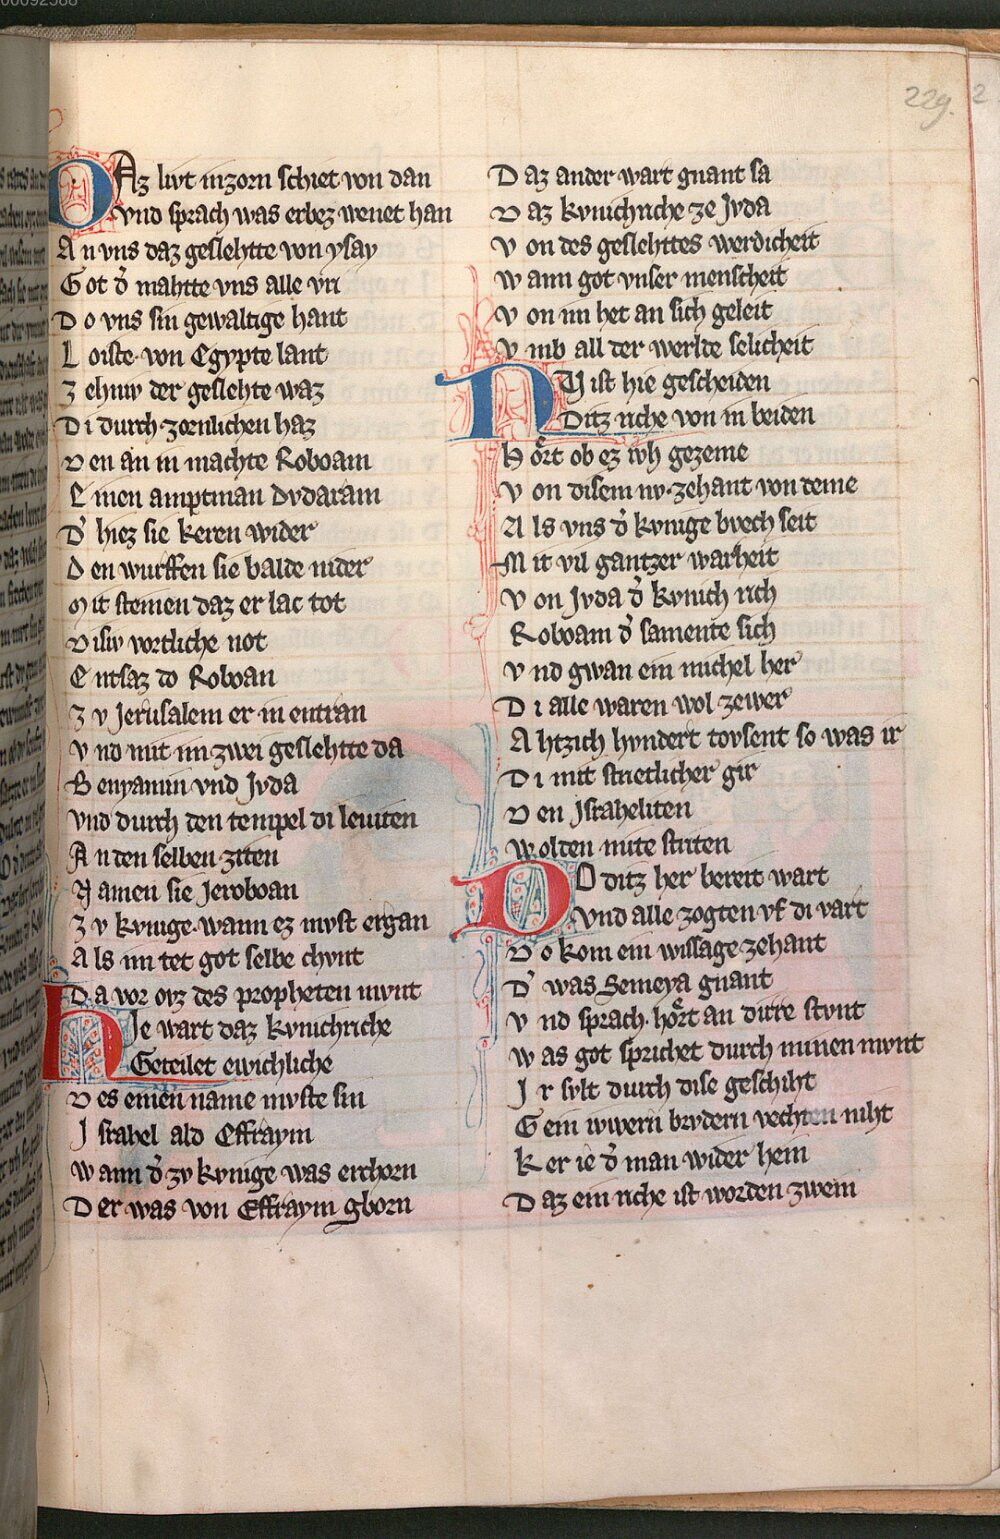 00092588
229.
2
DAz livt in zorn schiet von dan
vnd sprach was erbez wenet han
An vns daz geslehtte von ysay
Got d̾ mahtte vns alle vri
Do vns sin gewaltige hant
Loiste von Egypte lant
Zehuw der geslehte waz
Di durch zornlichen haz
Den an in machte Roboam
Einen amptman Dvdaram
D̾ hiez sie keren wider
Den wurffen sie balde nider
Mit steinen daz er lac tot
Disiv vortliche not
Entsaz do Roboan
Zv Jerusalem er in entran
Vnd mit im zwei geslehtte da
Benyamin vnd Jvda
Vnd durch den tempel di leuiten
An den selben ziten
Namen sie Jeroboan
Zv kvnige wann ez mvst ergan
Als im tet got selbe chvnt
Da vor ovz des propheten mvnt
HIe wart daz kvnichriche
Geteilet ewichliche
Des einen name mvste sin
Jstahel ald Effraym
Wann d̾ zv kvnige was erchorn
Der was von Effraym gborn
Daz ander wart gnant sa
Daz kvnichriche ze Jvda
Von des geslehttes werdicheit
Wann got vnser menscheit
Von im het an sich geleit
Vmb all der werlde selicheit
NV ist hie gescheiden
Ditz riche von in beiden
Hort ob ez iwh gezeme
Von disem nv zehant von deme
Als vns d̾ kvnige bvech seit
Mit vil gantzer warheit
Von Jvda d̾ kvnich rich
Roboam d̾ samente sich
Vnd gwan ein michel her
Di alle waren wol zewer
Ahtzich hvndert tovsent so was ir
Di mit stritlicher gir
Den Jstaheliten
Wolten mite striten
DO ditz her bereit wart
Vnd alle zogten vf di vart
Do kom ein wissage zehant
D̾ was Semeya gnant
Vnd sprach hort an dirre stvnt
Was got sprichet durch minen mvnt
Jr svlt durch dise geschiht
Gein iwern brvdern vechten niht
Ker ie d̾ man wider hein
Daz ein riche ist worden zwein